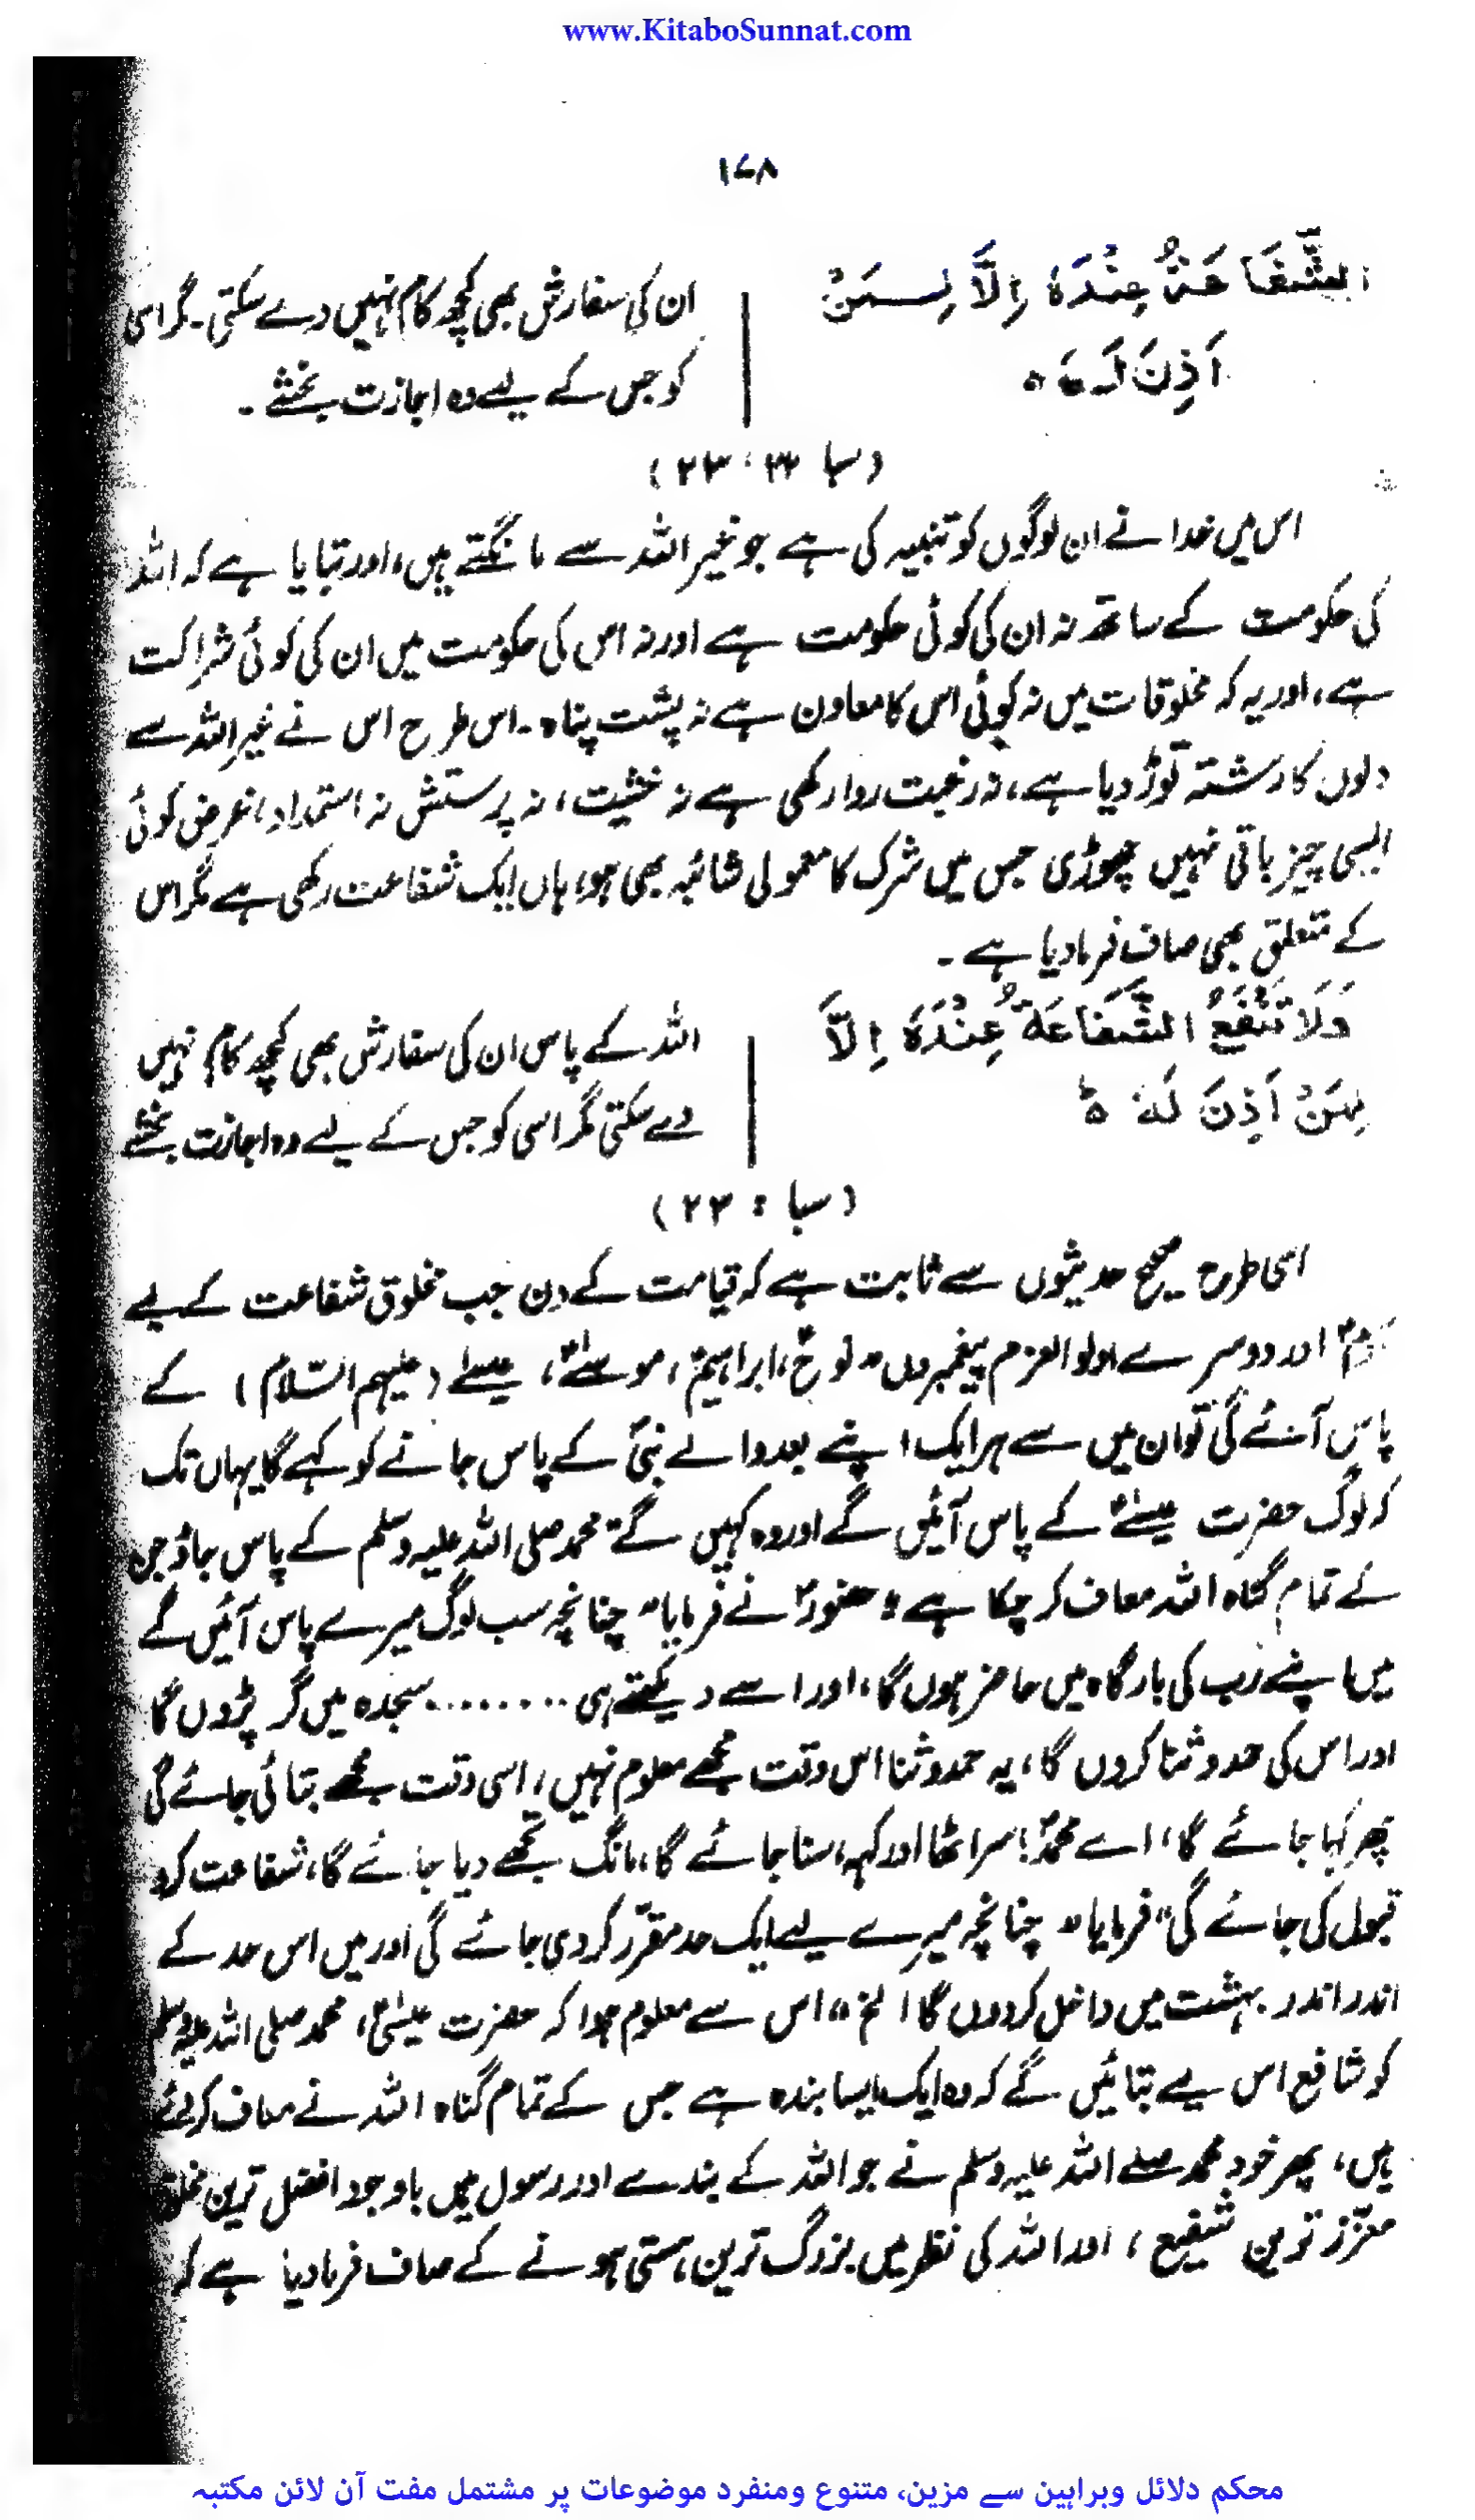 www.KitaboSunnat.com
۱۷۸
الشَّفَاعَةُ عِنْدَهٗ اِلَّا لِمَنْ
اَذِنَ لَهٗ ہ
ان کی سفارش بھی کچھ کام نہیں دے سکتی۔ مگر اسی
کو جس کے لیے وہ اجازت بخشے۔
(سبا ۲۲، ۲۳)
اس میں خدا نے ان لوگوں کو تنبیہ کی ہے جو غیر اللہ سے مانگتے ہیں، اور بتایا ہے کہ اللہ
کی حکومت کے ساتھ نہ ان کی کوئی حکومت ہے اور نہ اس کی حکومت میں ان کی کوئی شراکت
ہے، اور یہ کہ مخلوقات میں نہ کوئی اس کا معاون ہے نہ پشت پناہ۔ اس طرح اس نے غیر اللہ سے
دلوں کا رشتہ توڑ دیا ہے، نہ رغبت روا رکھی ہے نہ خشیت، نہ پرستش نہ استمداد، غرض کوئی
ایسی چیز باقی نہیں چھوڑی جس میں شرک کا معمولی شائبہ بھی ہو، ہاں ایک شفاعت رکھی ہے مگر اس
کے متعلق بھی صاف فرما دیا ہے۔
وَلَا تَنْفَعُ الشَّفَاعَةُ عِنْدَهٗ اِلَّا
لِمَنْ اَذِنَ لَهٗ ط
اللہ کے پاس ان کی سفارش بھی کچھ کام نہیں
دے سکتی مگر اسی کو جس کے لیے وہ اجازت بخشے
(سبا : ۲۳)
اسی طرح صحیح حدیثوں سے ثابت ہے کہ قیامت کے دن جب مخلوق شفاعت کے لیے
آدمؑ اور دوسرے اولوالعزم پیغمبروں " نوحؑ، ابراہیمؑ، موسےٰؑ، عیسےٰ (علیہم السّلام) کے
پاس آئے گی تو ان میں سے ہر ایک اپنے بعد والے نبیؐ کے پاس جانے کو کہے گا یہاں تک
کہ لوگ حضرت عیسےٰؑ کے پاس آئیں گے اور وہ کہیں گے " محمد صلی اللہ علیہ وسلم کے پاس جاؤ جن
کے تمام گناہ اللہ معاف کر چکا ہے؛ حضورؐ نے فرمایا " چنانچہ سب لوگ میرے پاس آئیں گے
میں اپنے رب کی بارگاہ میں حاضر ہوں گا، اور اسے دیکھتے ہی ........ سجدہ میں گر پڑوں گا
اور اس کی حمد و ثنا کروں گا، یہ حمد و ثنا اس وقت مجھے معلوم نہیں، اسی وقت مجھے بتائی جائے گی
پھر کہا جائے گا، اے محمدؐ! سر اٹھا اور کہہ، سنا جائے گا، مانگ تجھے دیا جائے گا، شفاعت کر،
قبول کی جائے گی" فرمایا " چنانچہ میرے لیے ایک حد مقرّر کر دی جائے گی اور میں اس حد کے
اندر اندر بہشت میں داخل کر دوں گا الخ" اس سے معلوم ہوا کہ حضرت عیسٰیؑ، محمد صلی اللہ علیہ وسلم
کو شافع اس لیے بتائیں گے کہ وہ ایک ایسا بندہ ہے جس کے تمام گناہ اللہ نے معاف کر دئے
ہیں، پھر خود محمد صلے اللہ علیہ وسلم نے جو اللہ کے بندے اور رسول ہیں باوجود افضل ترین
معزّز ترین شفیع، اور اللہ کی نظر میں بزرگ ترین ہستی ہونے کے صاف فرما دیا ہے کہ
محکم دلائل وبراہین سے مزین، متنوع ومنفرد موضوعات پر مشتمل مفت آن لائن مکتبہ